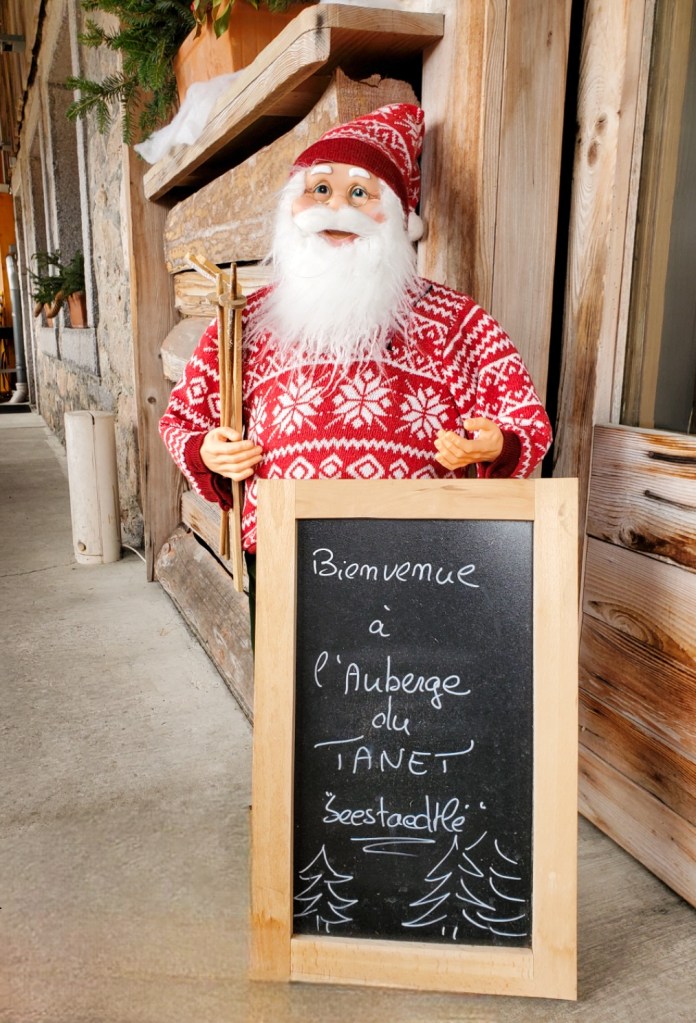 Bienvenue
à
l'Auberge
du
TANET
"Seestaedtlé"